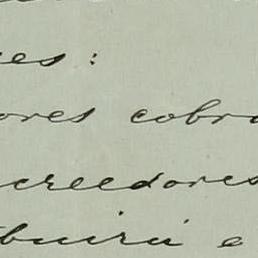 es:
ores cobra
creedores
buirá e